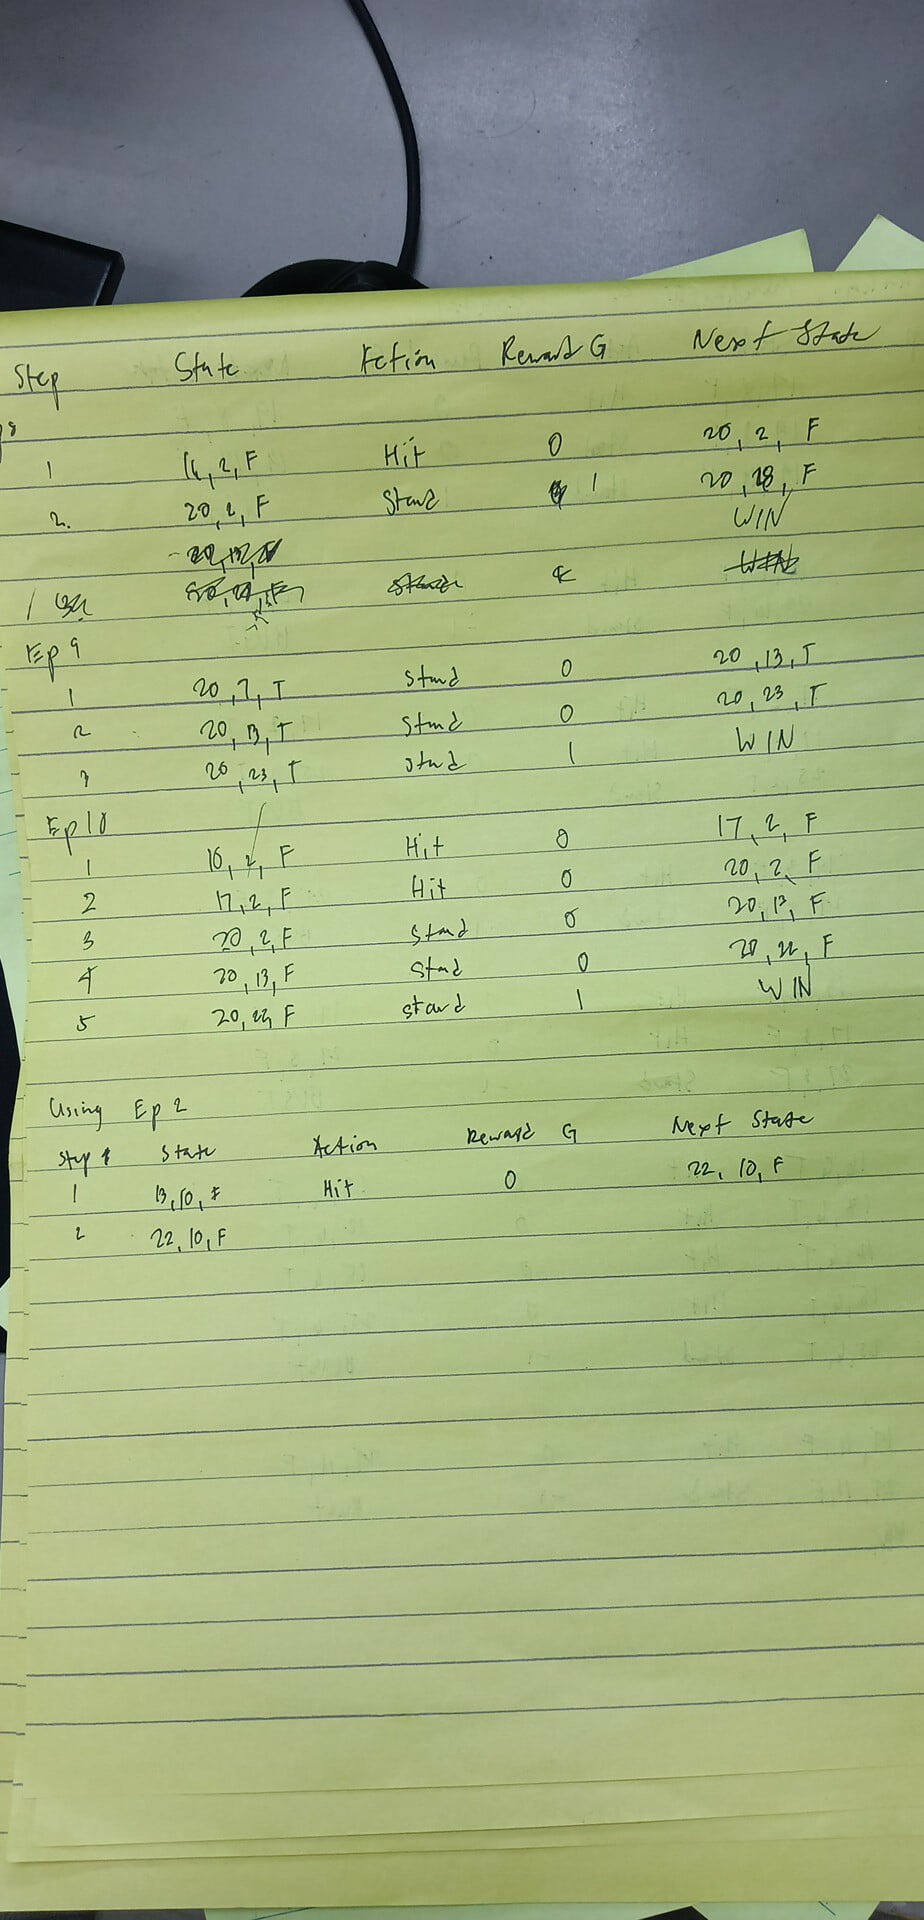 Step State Action Reward G Next State
8
1 16, 2, F Hit 0 20, 2, F
2. 20, 2, F Stand 1 20, 28, F
WIN
Ep 9
1 20, 7, T Stand 0 20, 13, T
2 20, 13, T Stand 0 20, 23, T
3 20, 23, T Stand 1 WIN
Ep 10
1 16, 2, F Hit 0 17, 2, F
2 17, 2, F Hit 0 20, 2, F
3 20, 2, F Stand 0 20, 13, F
4 20, 13, F Stand 0 20, 22, F
5 20, 22, F Stand 1 WIN
Using Ep 2
Step # State Action Reward G Next State
1 13, 10, F Hit 0 22, 10, F
2 22, 10, F